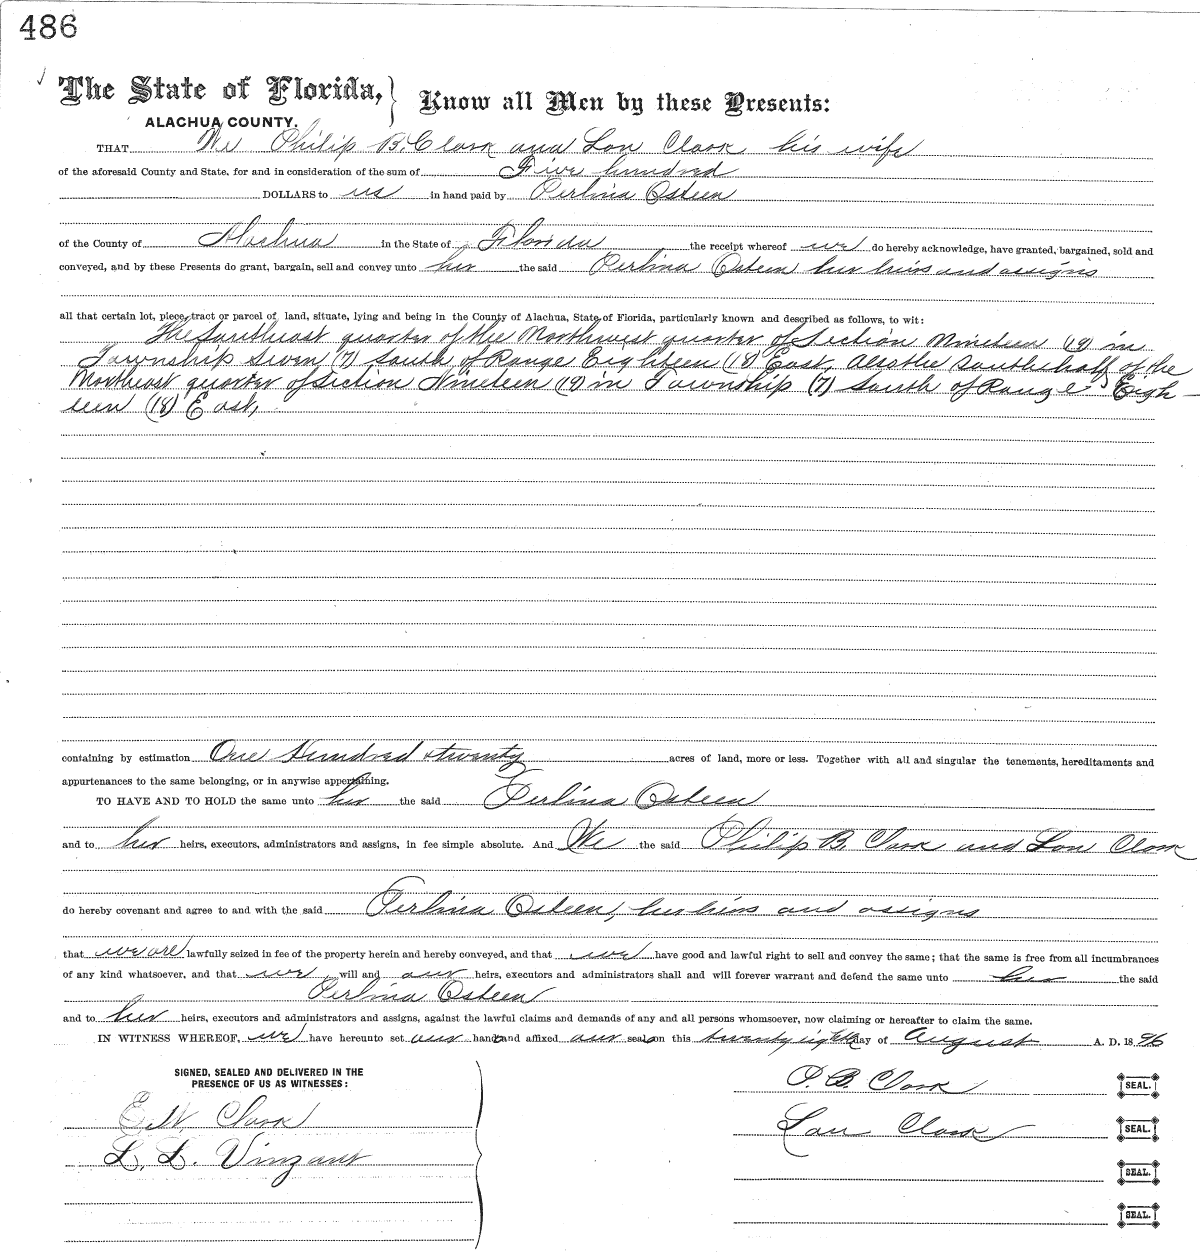 486
The State of Florida, } Know all Men by these Presents:
ALACHUA COUNTY.
THAT We Philip B. Clark and Lou Clark his wife
of the aforesaid County and State, for and in consideration of the sum of Five hundred
DOLLARS to us in hand paid by Perlina Osteen
of the County of Alachua in the State of Florida the receipt whereof we do hereby acknowledge, have granted, bargained, sold and
conveyed, and by these Presents do grant, bargain, sell and convey unto her the said Perlina Osteen her heirs and assigns
all that certain lot, piece, tract or parcel of land, situate, lying and being in the County of Alachua, State of Florida, particularly known and described as follows, to wit:
The Southeast quarter of the Northwest quarter of Section Nineteen (19) in
Township Seven (7) South of Range Eighteen (18) East, Also the South half of the
Northeast quarter of Section Nineteen (19) in Township (7) South of Range Eigh-
teen (18) East,
containing by estimation One Hundred & twenty acres of land, more or less. Together with all and singular the tenements, hereditaments and
appurtenances to the same belonging, or in anywise appertaining.
TO HAVE AND TO HOLD the same unto her the said Perlina Osteen
and to her heirs, executors, administrators and assigns, in fee simple absolute. And We the said Philip B. Clark and Lou Clark
do hereby covenant and agree to and with the said Perlina Osteen, her heirs and assigns
that we are lawfully seized in fee of the property herein and hereby conveyed, and that we have good and lawful right to sell and convey the same; that the same is free from all incumbrances
of any kind whatsoever, and that we will and our heirs, executors and administrators shall and will forever warrant and defend the same unto her the said
Perlina Osteen
and to her heirs, executors and administrators and assigns, against the lawful claims and demands of any and all persons whomsoever, now claiming or hereafter to claim the same.
IN WITNESS WHEREOF, we have hereunto set our hands and affixed our seals on this twenty eighth day of August A. D. 1896
SIGNED, SEALED AND DELIVERED IN THE
PRESENCE OF US AS WITNESSES:
P. B. Clark SEAL.
Clark
Lou Clark SEAL.
L. L. Vinzant
SEAL.
SEAL.